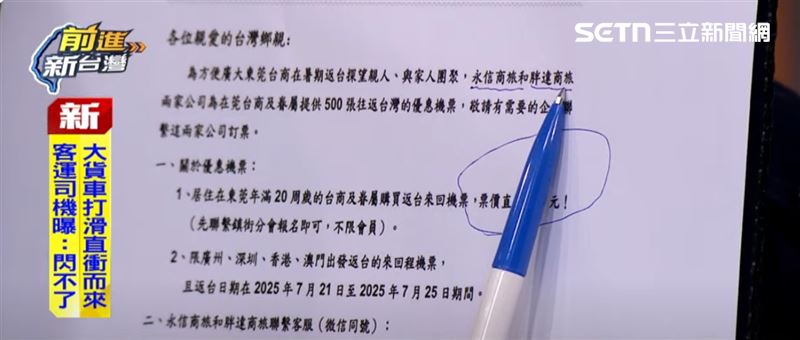 前進新台灣
SETN 三立新聞網
新
大貨車打滑直衝而來
客運司機曝：閃不了
各位親愛的台灣鄉親：
為方便廣大東莞台商在暑期返台探望親人、與家人團聚，永信商旅和胖達商旅
兩家公司為在莞台商及眷屬提供 500 張往返台灣的優惠機票，敬請有需要的企 聯
繫這兩家公司訂票。
一、關於優惠機票：
1、居住在東莞年滿 20 周歲的台商及眷屬購買返台來回機票，票價直 元！
（先聯繫鎮街分會報名即可，不限會員）。
2、限廣州、深圳、香港、澳門出發返台的來回程機票，
且返台日期在 2025 年 7 月 21 日至 2025 年 7 月 25 日期間。
二、永信商旅和胖達商旅聯繫客服（微信同號）：